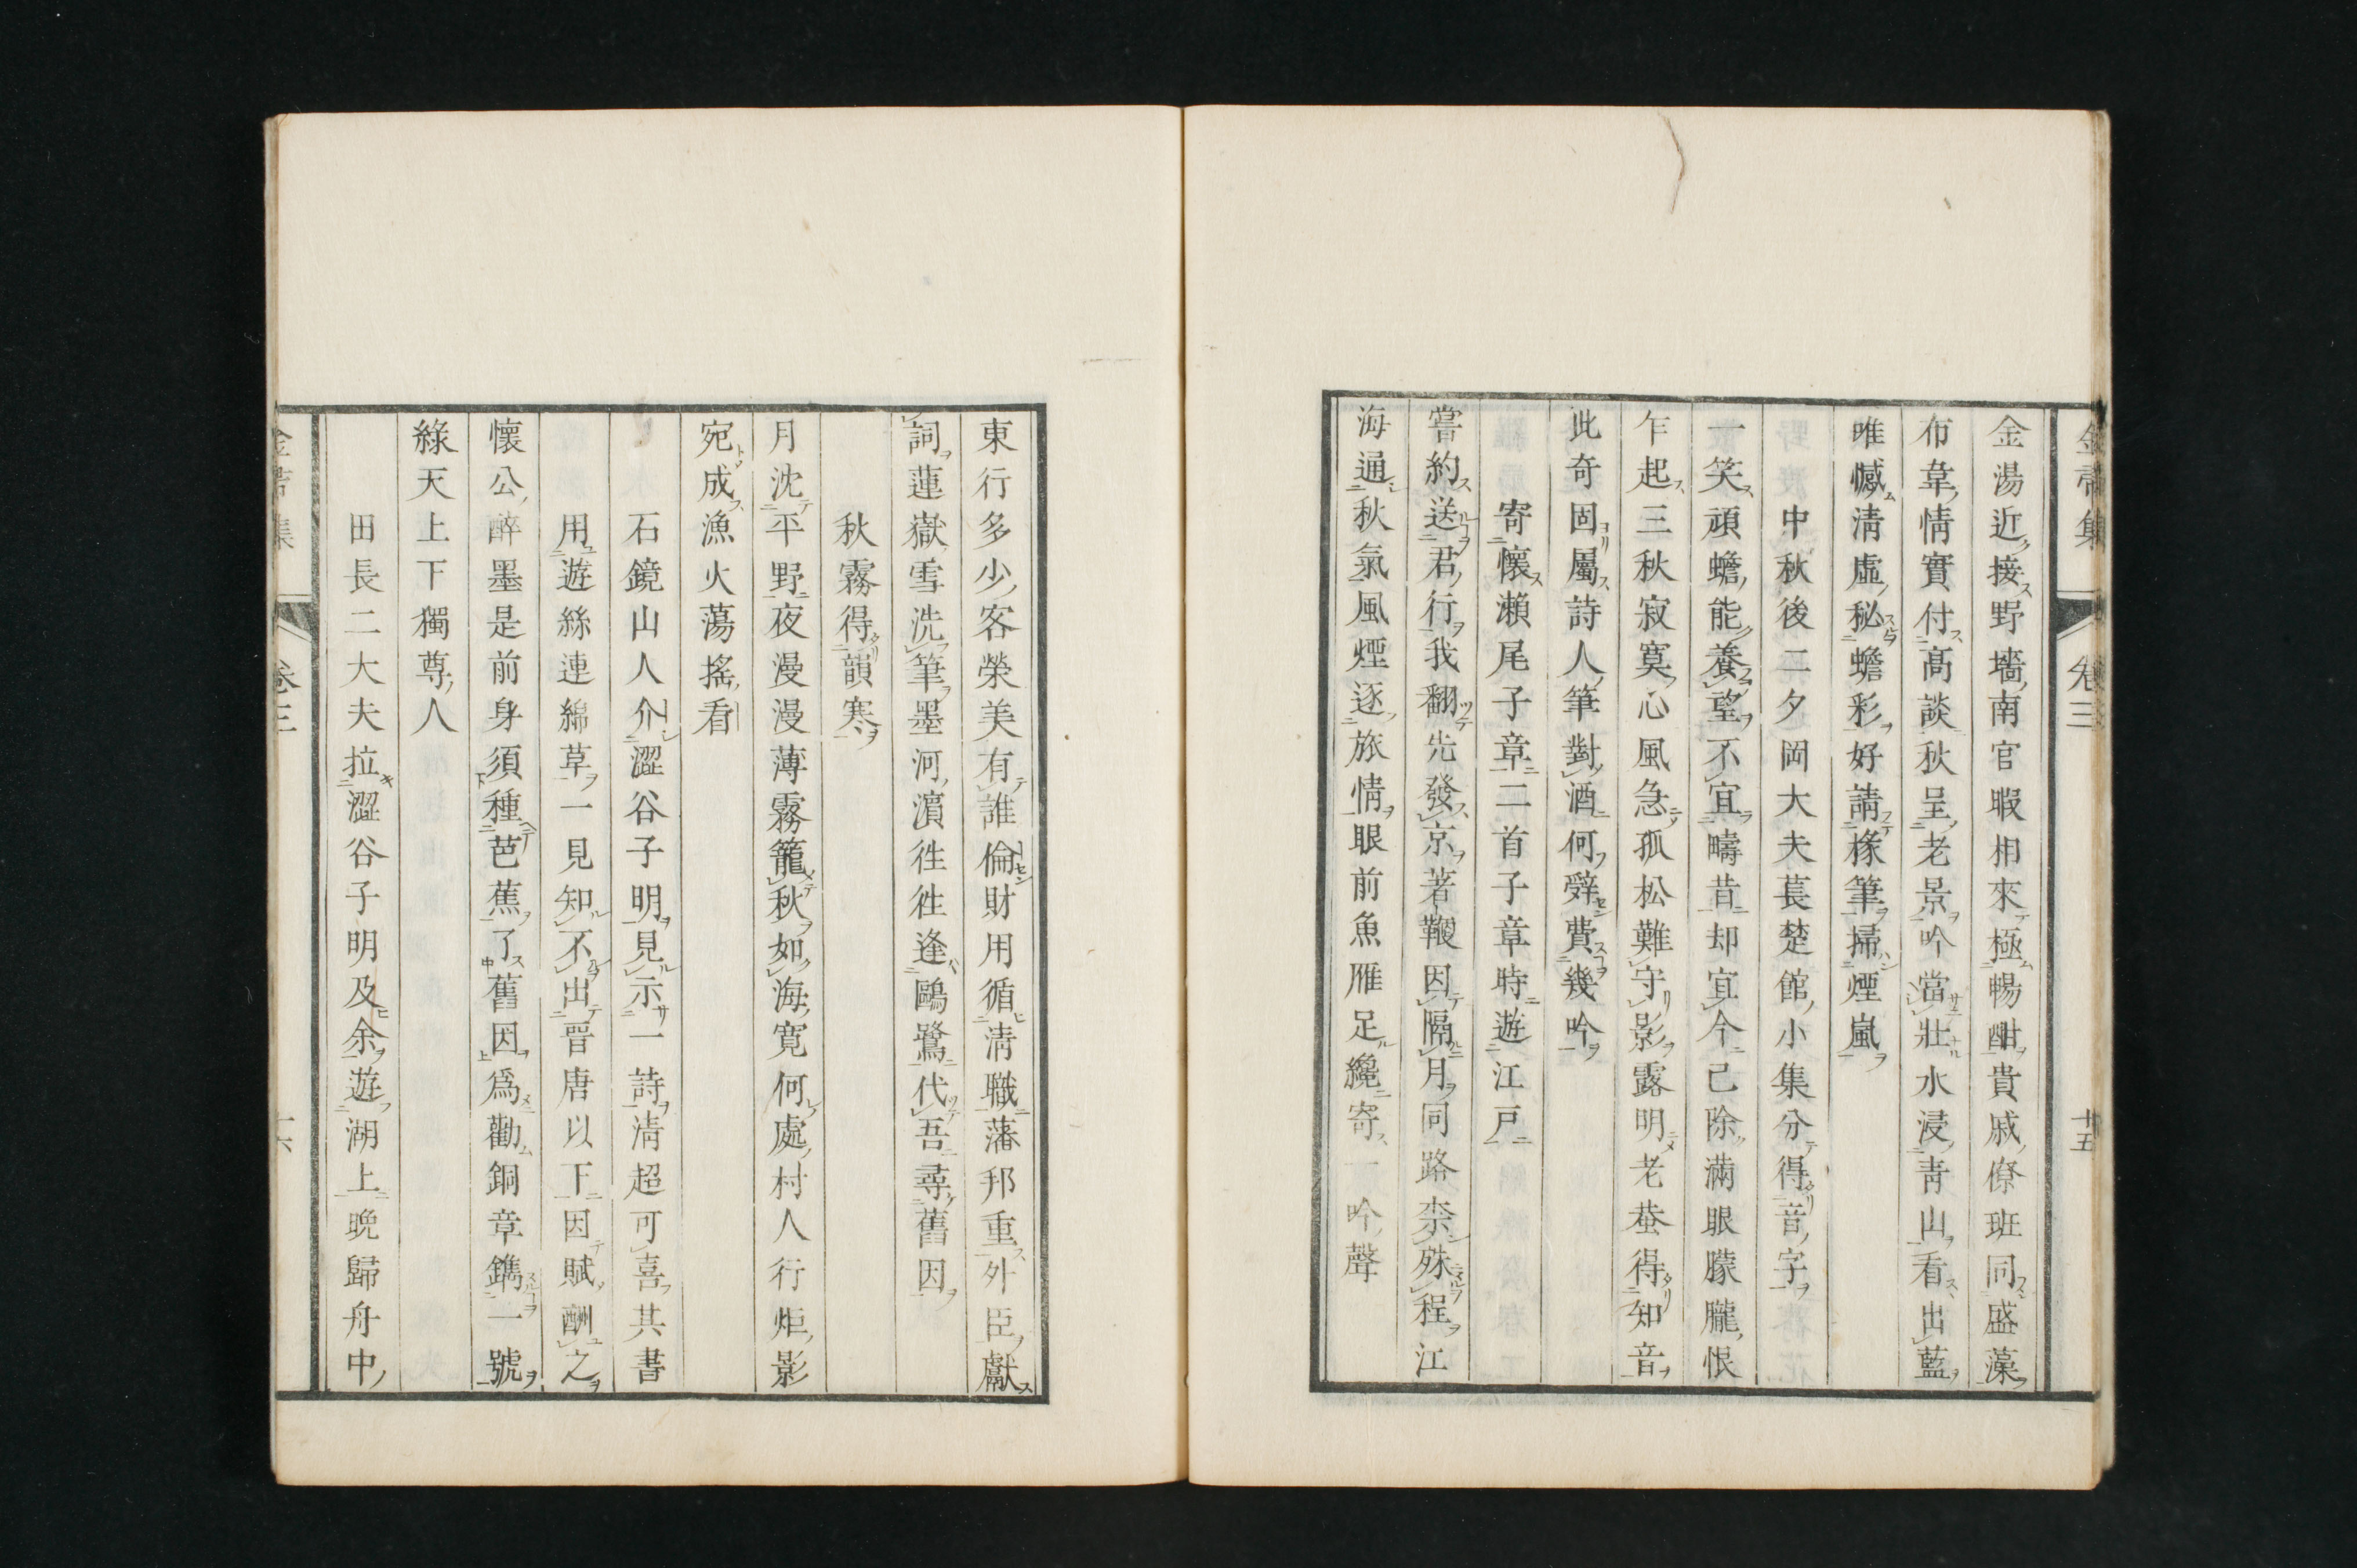 金湯近接野墻南官暇相來極暢酣貴戚僚班同盛藻
布韋情實付高談秋呈老景吟當壯水浸靑山看出藍
唯憾淸虛秘蟾彩好請椽筆掃煙嵐
中秋後二夕岡大夫萇楚館小集分得音字
一笑頑蟾能養望不宜疇昔却宜今已除滿眼朦朧恨
乍起三秋寂寞心風急孤松難守影露明老蛬得知音
此奇固屬詩人筆對酒何辤費幾吟
寄懷瀨尾子章二首子章時遊江戶
嘗約送君行我翻先發京著鞭因隔月同路柰殊程江
海通秋氣風煙逐旅情眼前魚雁足纔寄一吟聲
卷三
十五
東行多少客榮美有誰倫財用循淸職藩邦重外臣獻
詞蓮嶽雪洗筆墨河濵徃徃逢鷗鷺代吾尋舊因
秋霧得韻寒
月沈平野夜漫漫薄霧籠秋如海寬何處村人行炬影
宛成漁火蕩搖看
石鏡山人介澀谷子明見示一詩淸超可喜其書
用遊絲連綿草一見知不出晉唐以下因賦酬之
懷公醉墨是前身須種芭蕉了舊因爲勸銅章鐫一號
綠天上下獨尊人
田長二大夫拉澀谷子明及余遊湖上晚歸舟中